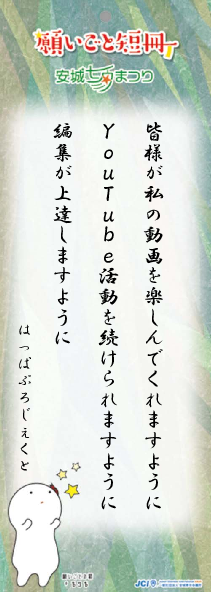 願いごと短冊
安城七夕まつり
皆様が私の動画を楽しんでくれますように
YouTube活動を続けられますように
編集が上達しますように
はっぱぷろじぇくと
JCI